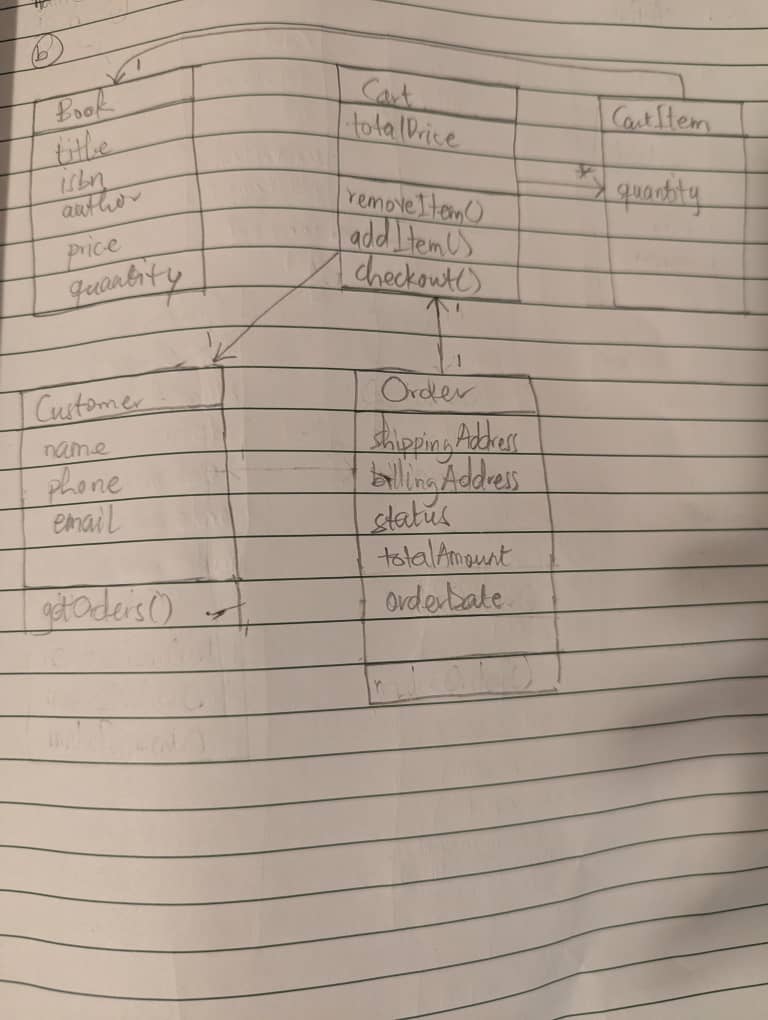 b
1
Book
title
isbn
author
price
quantity
Cart
totalPrice
removeItem()
addItem()
checkout()
*
CartItem
quantity
1
1
1
Customer
name
phone
email
getOrders()
1
Order
shippingAddress
billingAddress
status
totalAmount
orderDate